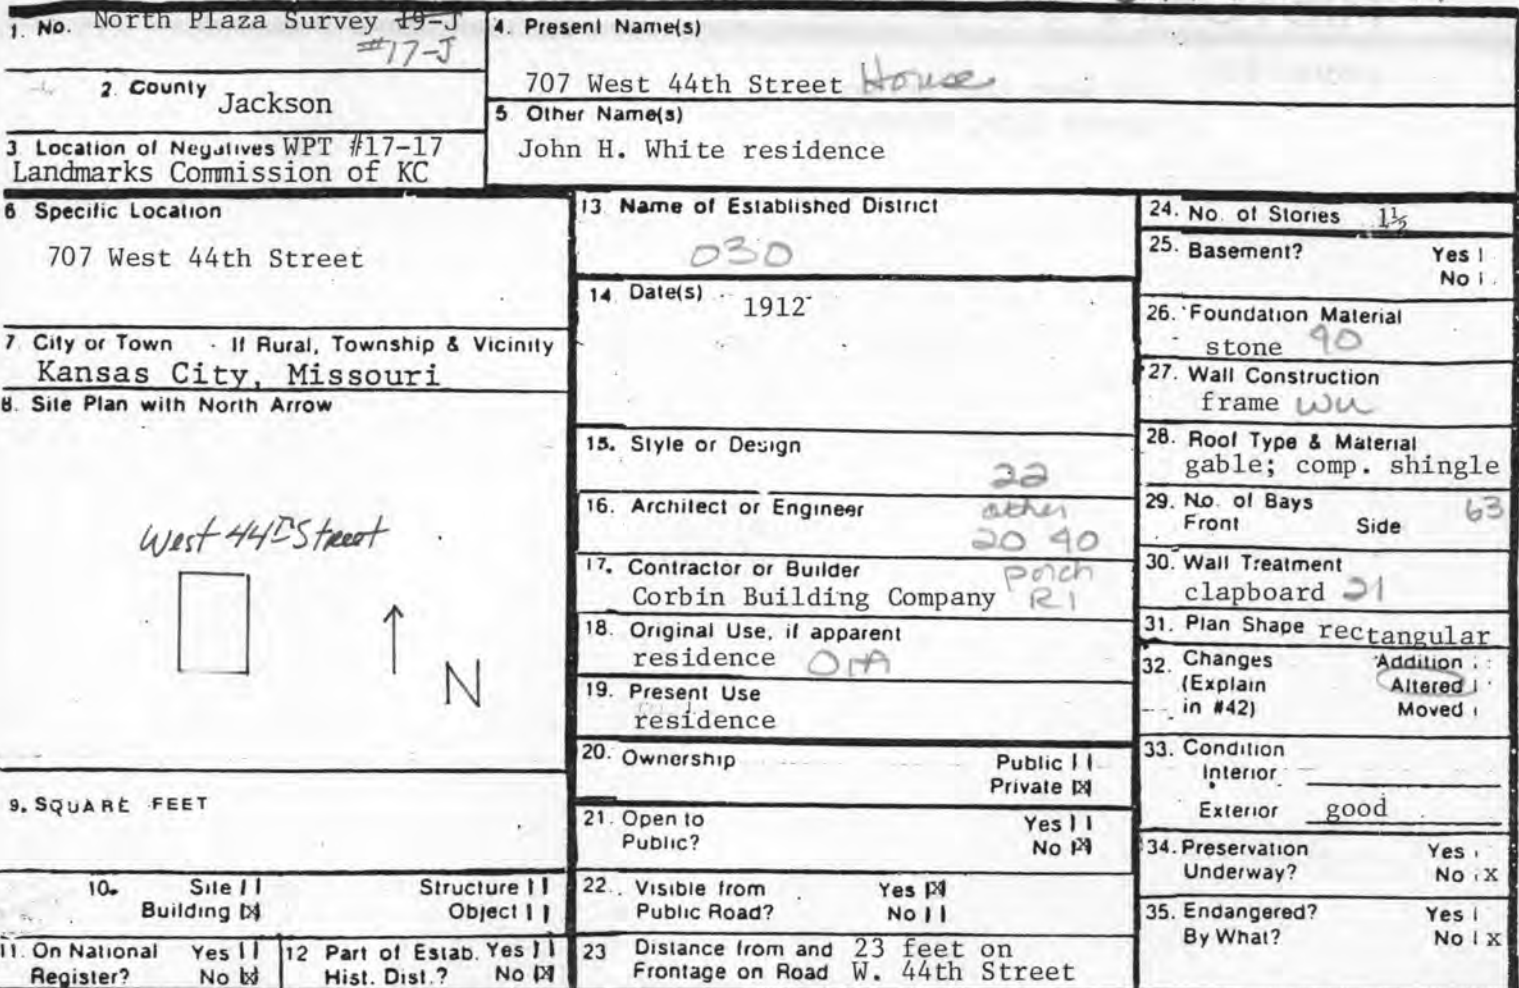 1. No. North Plaza Survey 19-J
#17-J
2. County Jackson
3 Location of Negatives WPT #17-17
Landmarks Commission of KC
4. Present Name(s)
707 West 44th Street House
5 Other Name(s)
John H. White residence
6 Specific Location
707 West 44th Street
7. City or Town If Rural, Township & Vicinity
Kansas City, Missouri
8. Site Plan with North Arrow
West 44th Street
N
9. SQUARE FEET
10. Site Structure
Building [X] Object
11. On National Register? Yes No [X]
12 Part of Estab. Hist. Dist.? Yes No [X]
13. Name of Established District
030
14. Date(s) 1912
15. Style or Design
22
16. Architect or Engineer
other
20 40
17. Contractor or Builder
porch
Corbin Building Company R1
18. Original Use, if apparent
residence 01A
19. Present Use
residence
20. Ownership Public
Private [X]
21. Open to Public? Yes
No [X]
22. Visible from Public Road? Yes [X]
No
23 Distance from and 23 feet on
Frontage on Road W. 44th Street
24. No. of Stories 1½
25. Basement? Yes
No
26. Foundation Material
stone 40
27. Wall Construction
frame WU
28. Roof Type & Material
gable; comp. shingle
29. No. of Bays 63
Front Side
30. Wall Treatment
clapboard 21
31. Plan Shape rectangular
32. Changes Addition
(Explain Altered
in #42) Moved
33. Condition
Interior
Exterior good
34. Preservation Underway? Yes
No X
35. Endangered? Yes
By What? No X